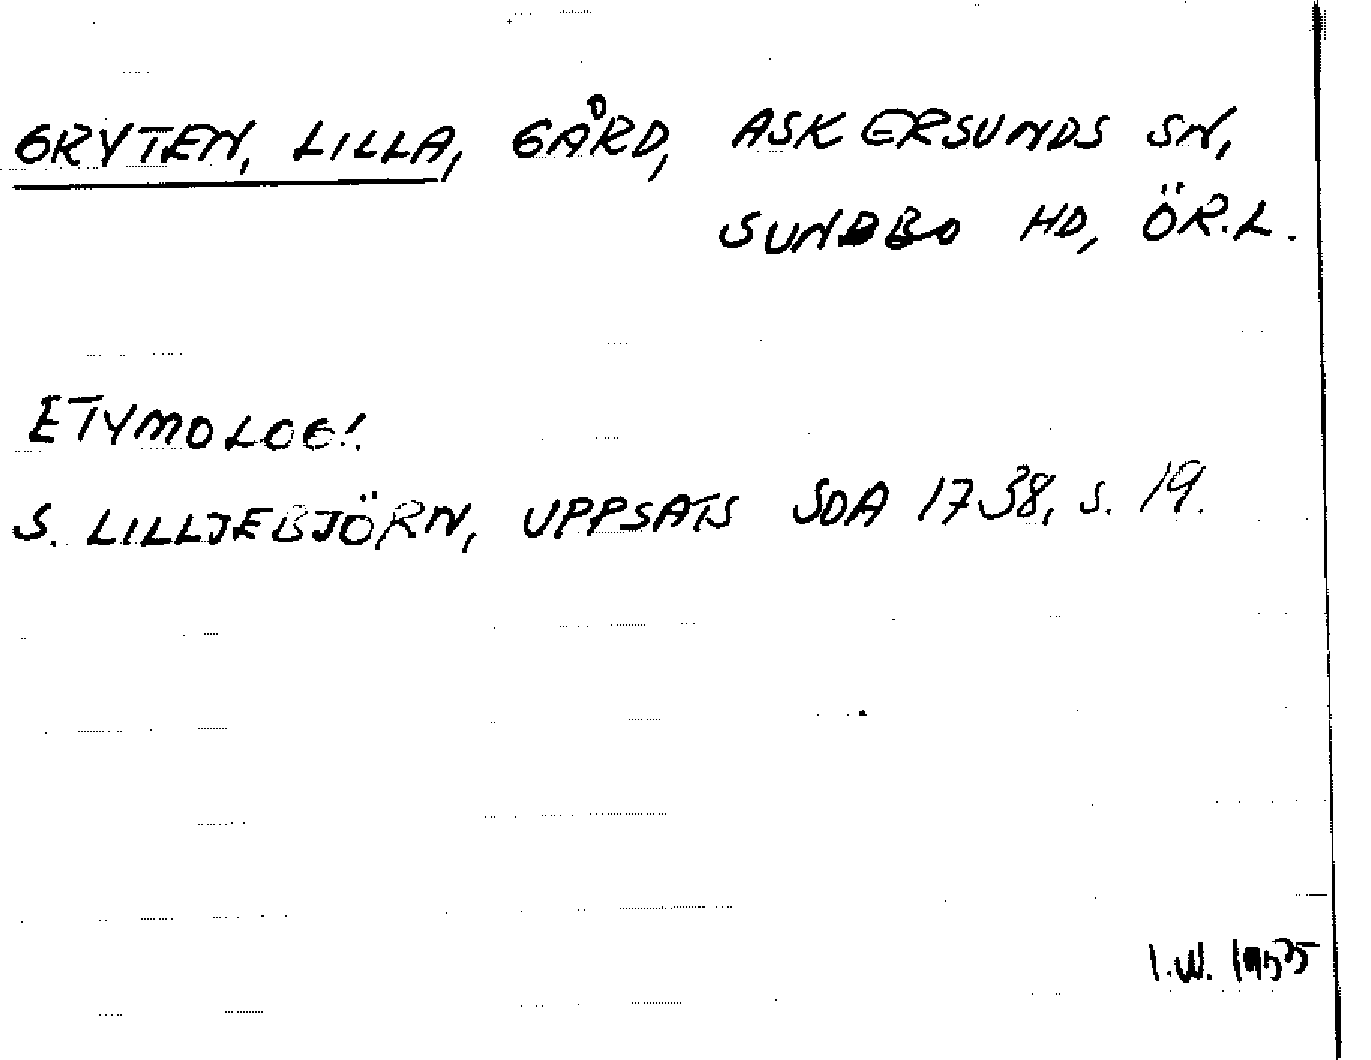 GRYTEN, LILLA, GÅRD, ASKERSUNDS SN,
SUNDBO HD, ÖR.L.
ETYMOLOGI.
S. LILLJEBJÖRN, UPPSATS SOA 1738, S. 19.
I.W.